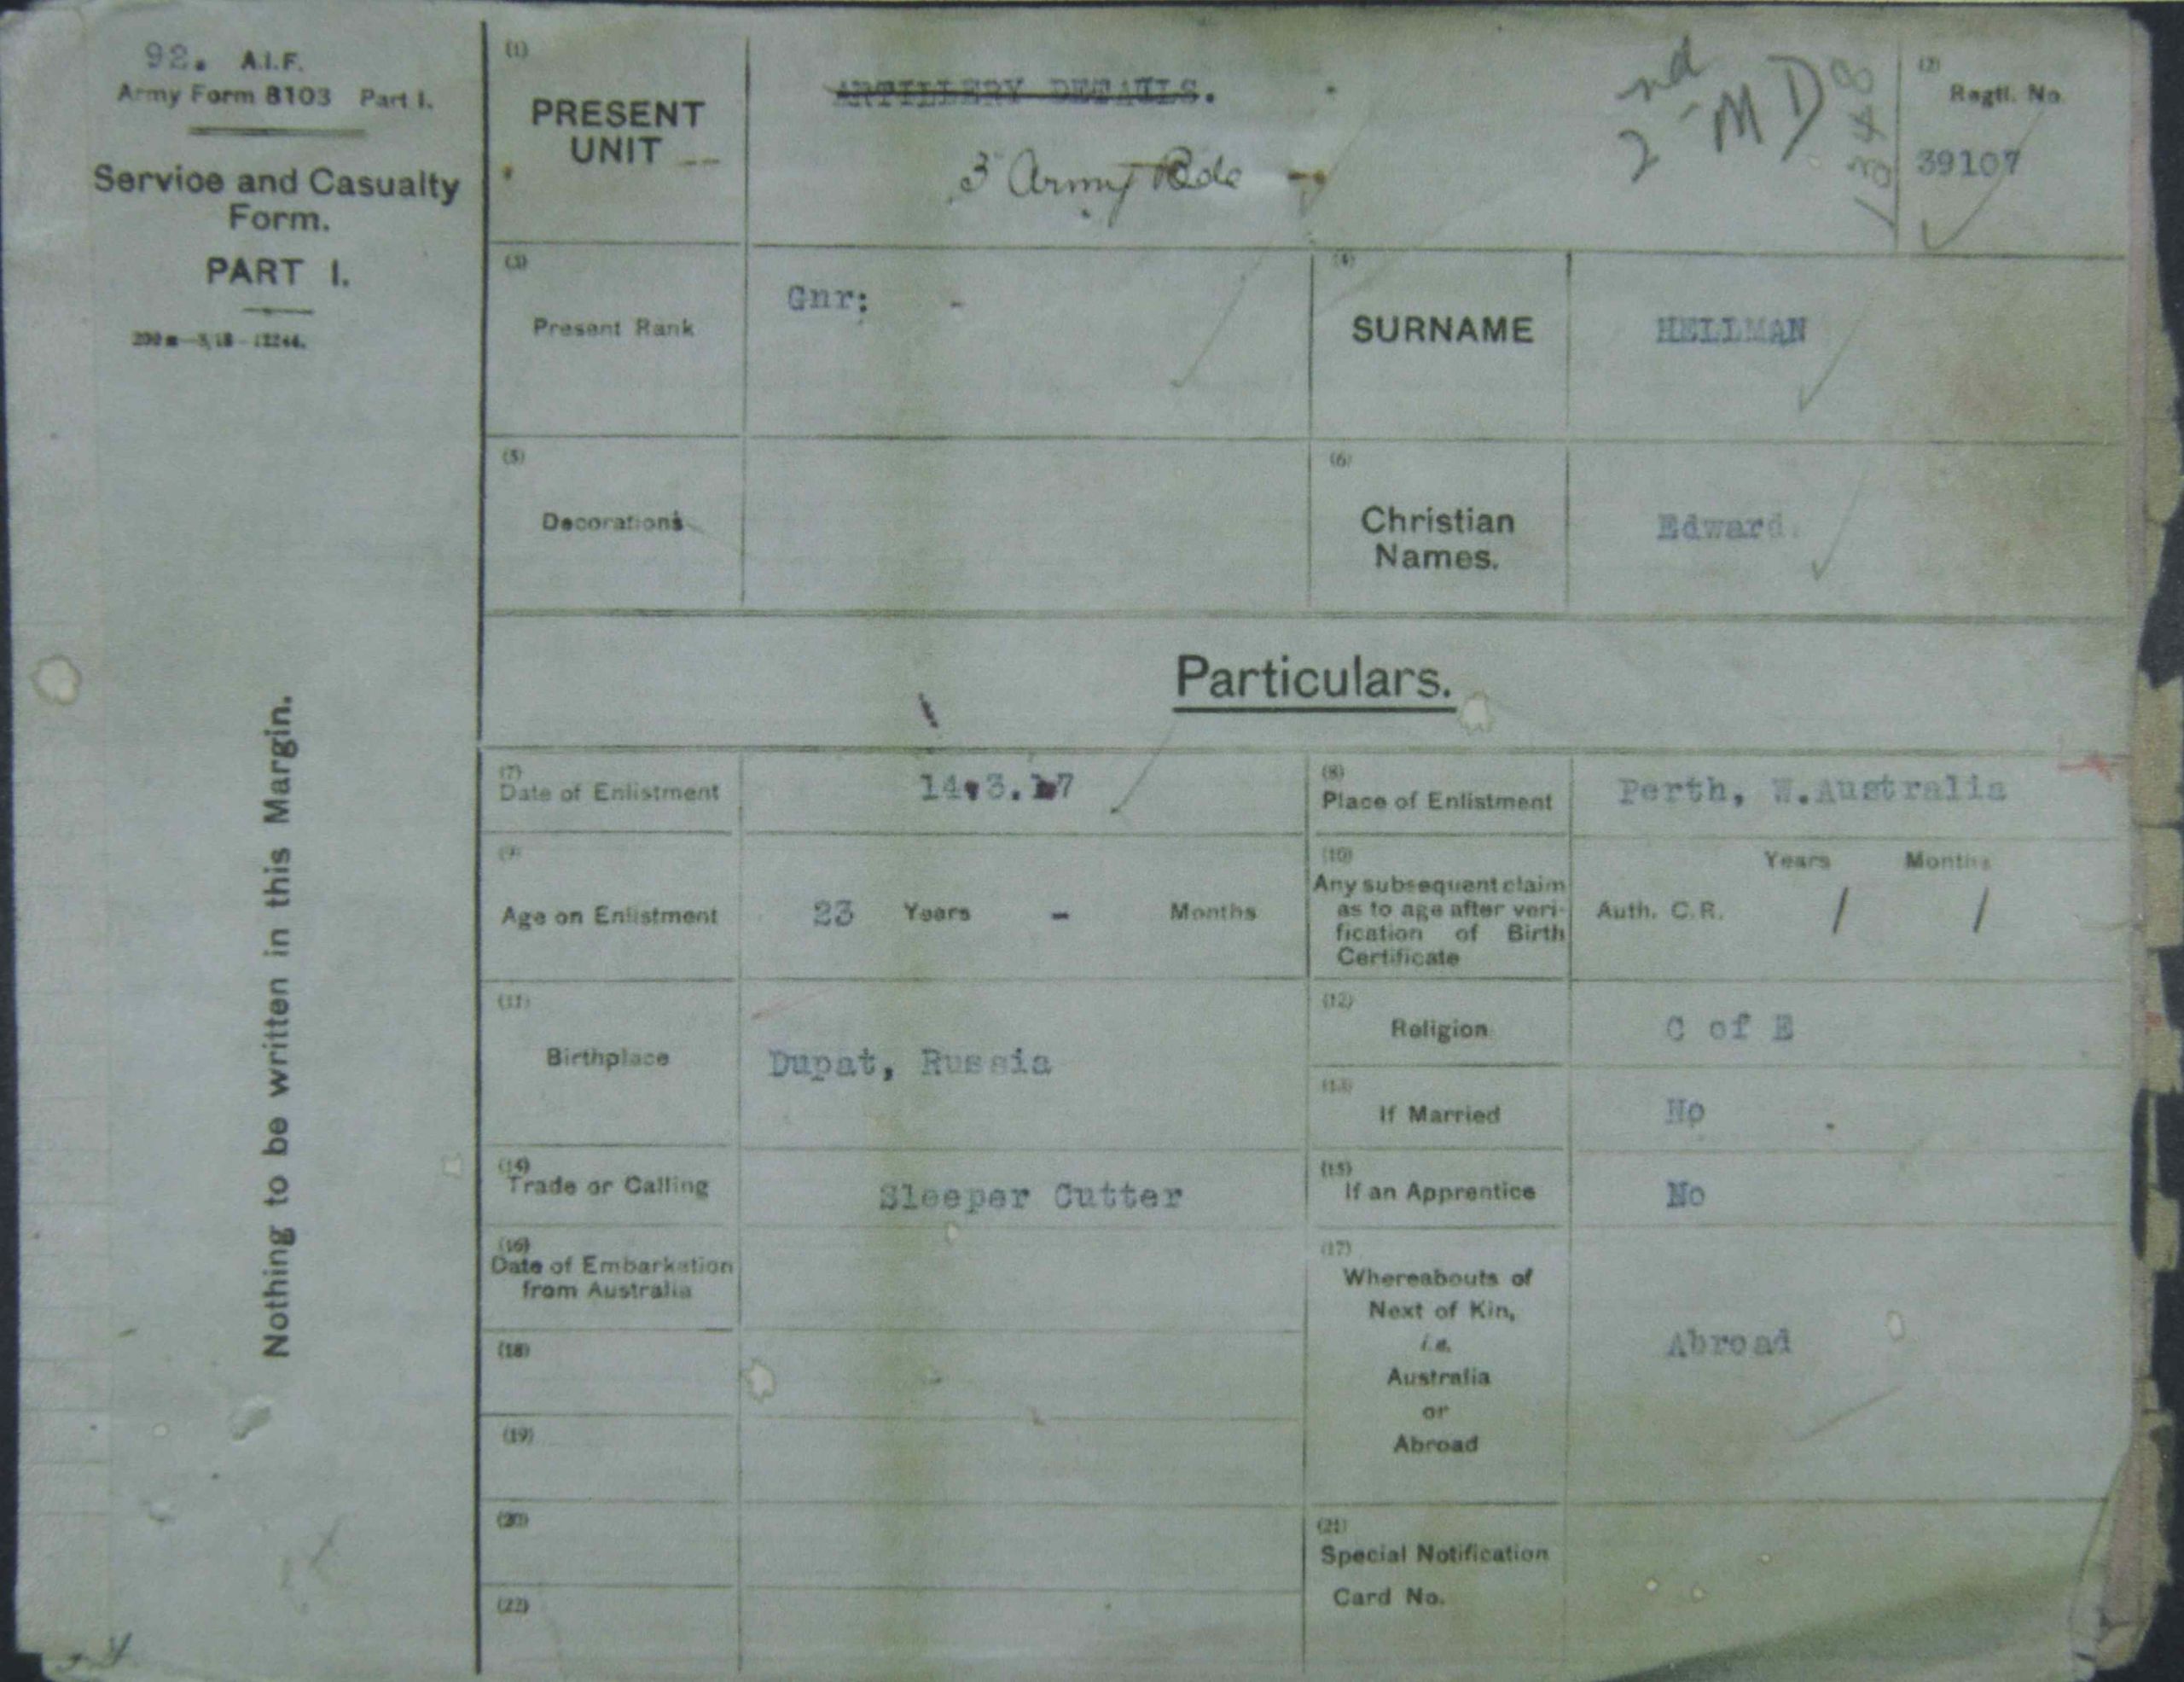 92. A.I.F.
Army Form B103 Part I.
Service and Casualty
Form.
PART I.
Nothing to be written in this Margin.
(1)
PRESENT
UNIT
ARTILLERY DETAILS.
3 Army Bde
2nd MD
1348
(2)
Regtl. No.
39107
(3)
Present Rank
Gnr: -
(4)
SURNAME
HELLMAN
(5)
Decorations
(6)
Christian
Names.
Edward.
Particulars.
(7)
Date of Enlistment
14.3.17
(8)
Place of Enlistment
Perth, W.Australia
(9)
Age on Enlistment
23 Years - Months
(10)
Any subsequent claim
as to age after veri-
fication of Birth
Certificate
Years Months
Auth. C.R. / /
(11)
Birthplace
Dupat, Russia
(12)
Religion
C of E
(13)
If Married
No
(14)
Trade or Calling
Sleeper Cutter
(15)
If an Apprentice
No
(16)
Date of Embarkation
from Australia
(17)
Whereabouts of
Next of Kin,
i.e.
Australia
or
Abroad
Abroad
(18)
(19)
(20)
(21)
Special Notification
Card No.
(22)